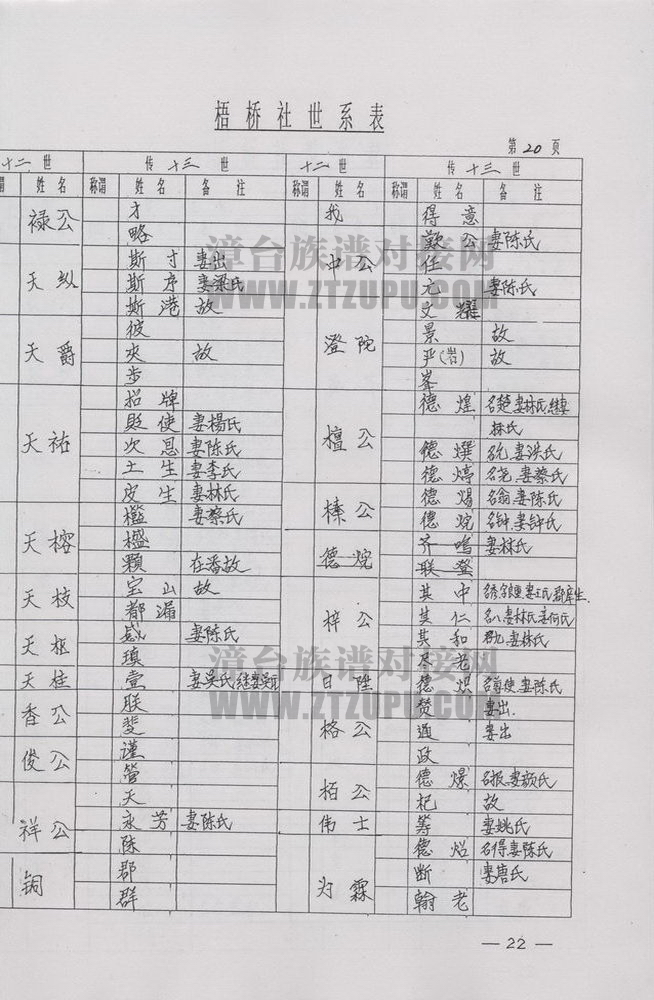 梧桥社世系表
第20页
十二世 传十三世 十二世 传十三世
姓名 称谓 姓名 备注 称谓 姓名 称谓 姓名 备注
禄公 才 找 得意
略 歎公 妻陈氏
天纵 斯寸 妻出 中公 任
斯序 妻梁氏 元 妻陈氏
斯港 故 文耀
天爵 彼 澄院 景 故
夾 故 尹(岩) 故
步 峯
天祐 招牌 檀公 德煌 名楚,妻林氏,継妻
贬使 妻楊氏 林氏
次恩 妻陈氏 德熼 妻洪氏
土生 妻李氏 德焞 名尧,妻蔡氏
皮生 妻林氏 榛公 德焬 名翁,妻陈氏
天榕 檻 妻蔡氏 德烷 名钟,妻钟氏
楹 德烷 齐鳴 妻林氏
顆 在番故 联登
天枝 宝山 故 梓公 其中
都漏 其仁 名八,妻林氏,妾何氏
天枢 感 妻陈氏 其和 妻林氏
瑱 尽老
天桂 壹 妻吴氏 日陞 德炽 妻陈氏
香公 朕 格公 焚 妻出
斐 通 妻出
俊公 谨 政
管 栢公 德燝 名报,妻颜氏
祥公 天 杞 故
永芳 妻陈氏 伟士 筹 妻姚氏
陈 为霖 德炤 名得,妻陈氏
铜 郡 断 妻唐氏
群 翰老
漳台族谱对接网
WWW.ZTZUPU.COM
漳台族谱对接网
WWW.ZTZUPU.COM
— 22 —